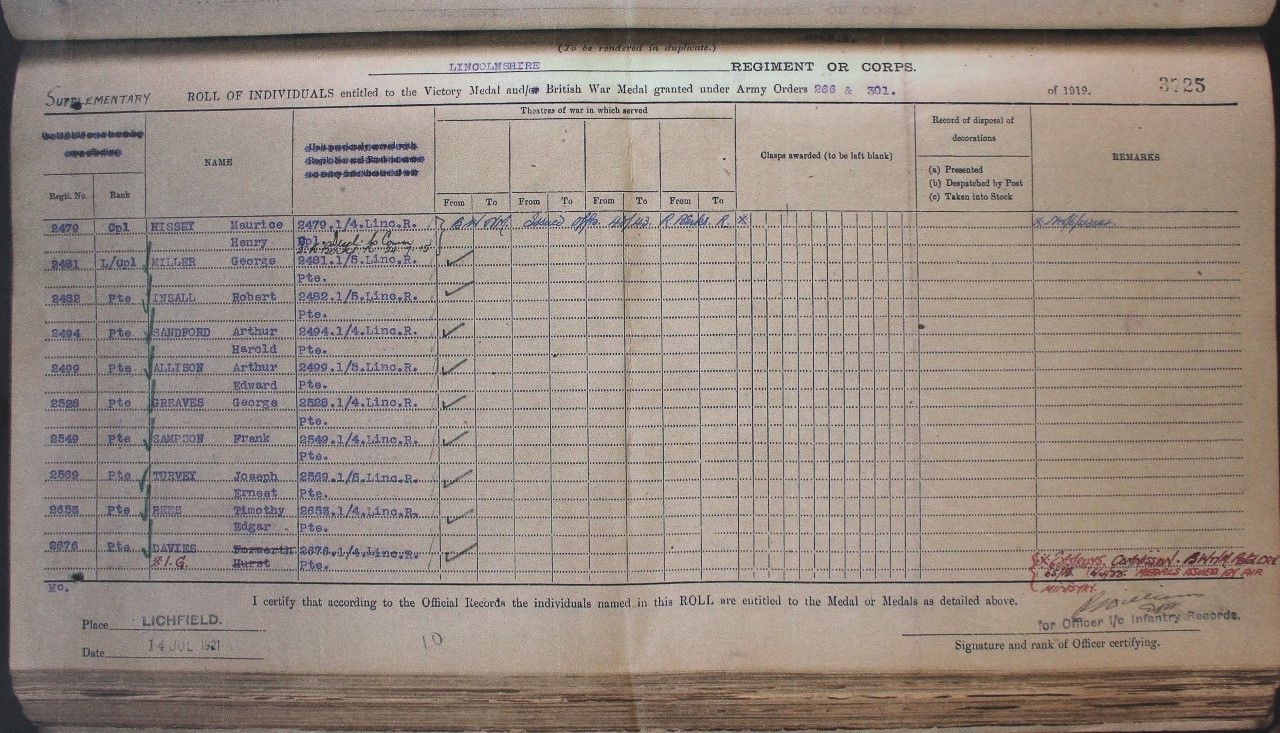 (To be rendered in duplicate.)
LINCOLNSHIRE REGIMENT OR CORPS.
SUPPLEMENTARY ROLL OF INDIVIDUALS entitled to the Victory Medal and/or British War Medal granted under Army Orders 266 & 301. of 1919. 3725
Theatres of war in which served
Record of disposal of decorations
NAME Clasps awarded (to be left blank) REMARKS
(a) Presented
(b) Despatched by Post
(c) Taken into Stock
Regtl. No. Rank From To From To From To From To
2479 Cpl HISSEY Maurice 2479.1/4.Linc.R. B.W. & V.M. Issued R. Berks. R. X X
Henry Cpl
2481 L/Cpl MILLER George 2481.1/5.Linc.R.
Pte.
2482 Pte INSALL Robert 2482.1/5.Linc.R.
Pte.
2494 Pte SANDFORD Arthur 2494.1/4.Linc.R.
Harold Pte.
2499 Pte ALLISON Arthur 2499.1/5.Linc.R.
Edward Pte.
2528 Pte GREAVES George 2528.1/4.Linc.R.
Pte.
2549 Pte SAMPSON Frank 2549.1/4.Linc.R.
Pte.
2569 Pte TURVEY Joseph 2569.1/5.Linc.R.
Ernest Pte.
2653 Pte REES Timothy 2653.1/4.Linc.R.
Edgar Pte.
2676 Pte DAVIES Forwerth 2676.1/4.Linc.R.
X I.G. Hurst Pte. X COMMISSION. B.W. & V.M.
MEDALS ISSUED BY AIR
MINISTRY.
MC.
I certify that according to the Official Records the individuals named in this ROLL are entitled to the Medal or Medals as detailed above.
Place LICHFIELD. for Officer i/c Infantry Records.
Date 14 JUL 1921 10 Signature and rank of Officer certifying.